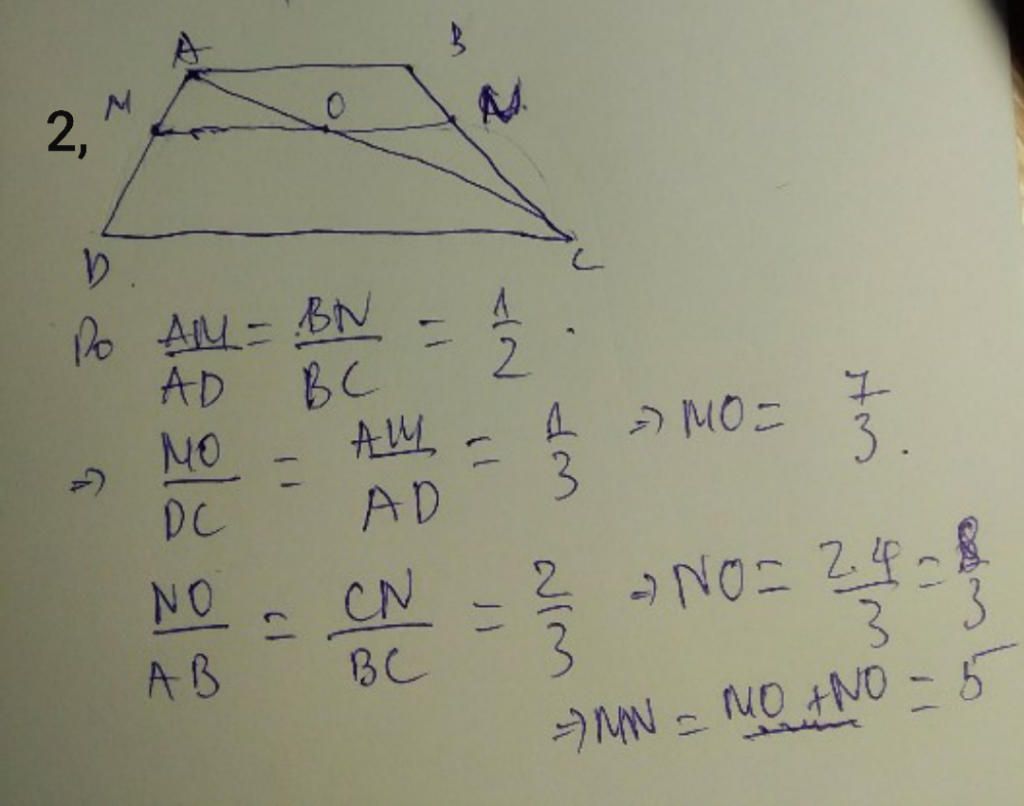 A B
M O N
2,
D C
Do AM/AD = BN/BC = 1/2 .
=> MO/DC = AM/AD = 1/3 => MO = 7/3 .
NO/AB = CN/BC = 2/3 => NO = 2.4/3 = 8/3
=> MN = MO + NO = 5